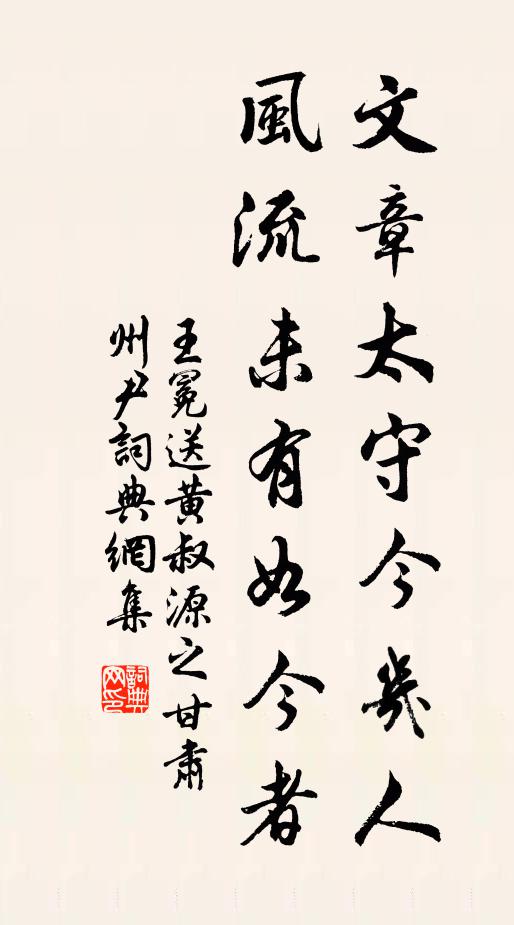 文章太守今幾人
風流未有如今者
王冕送黃叔源之甘肅
州尹詞典網集
詞典网印